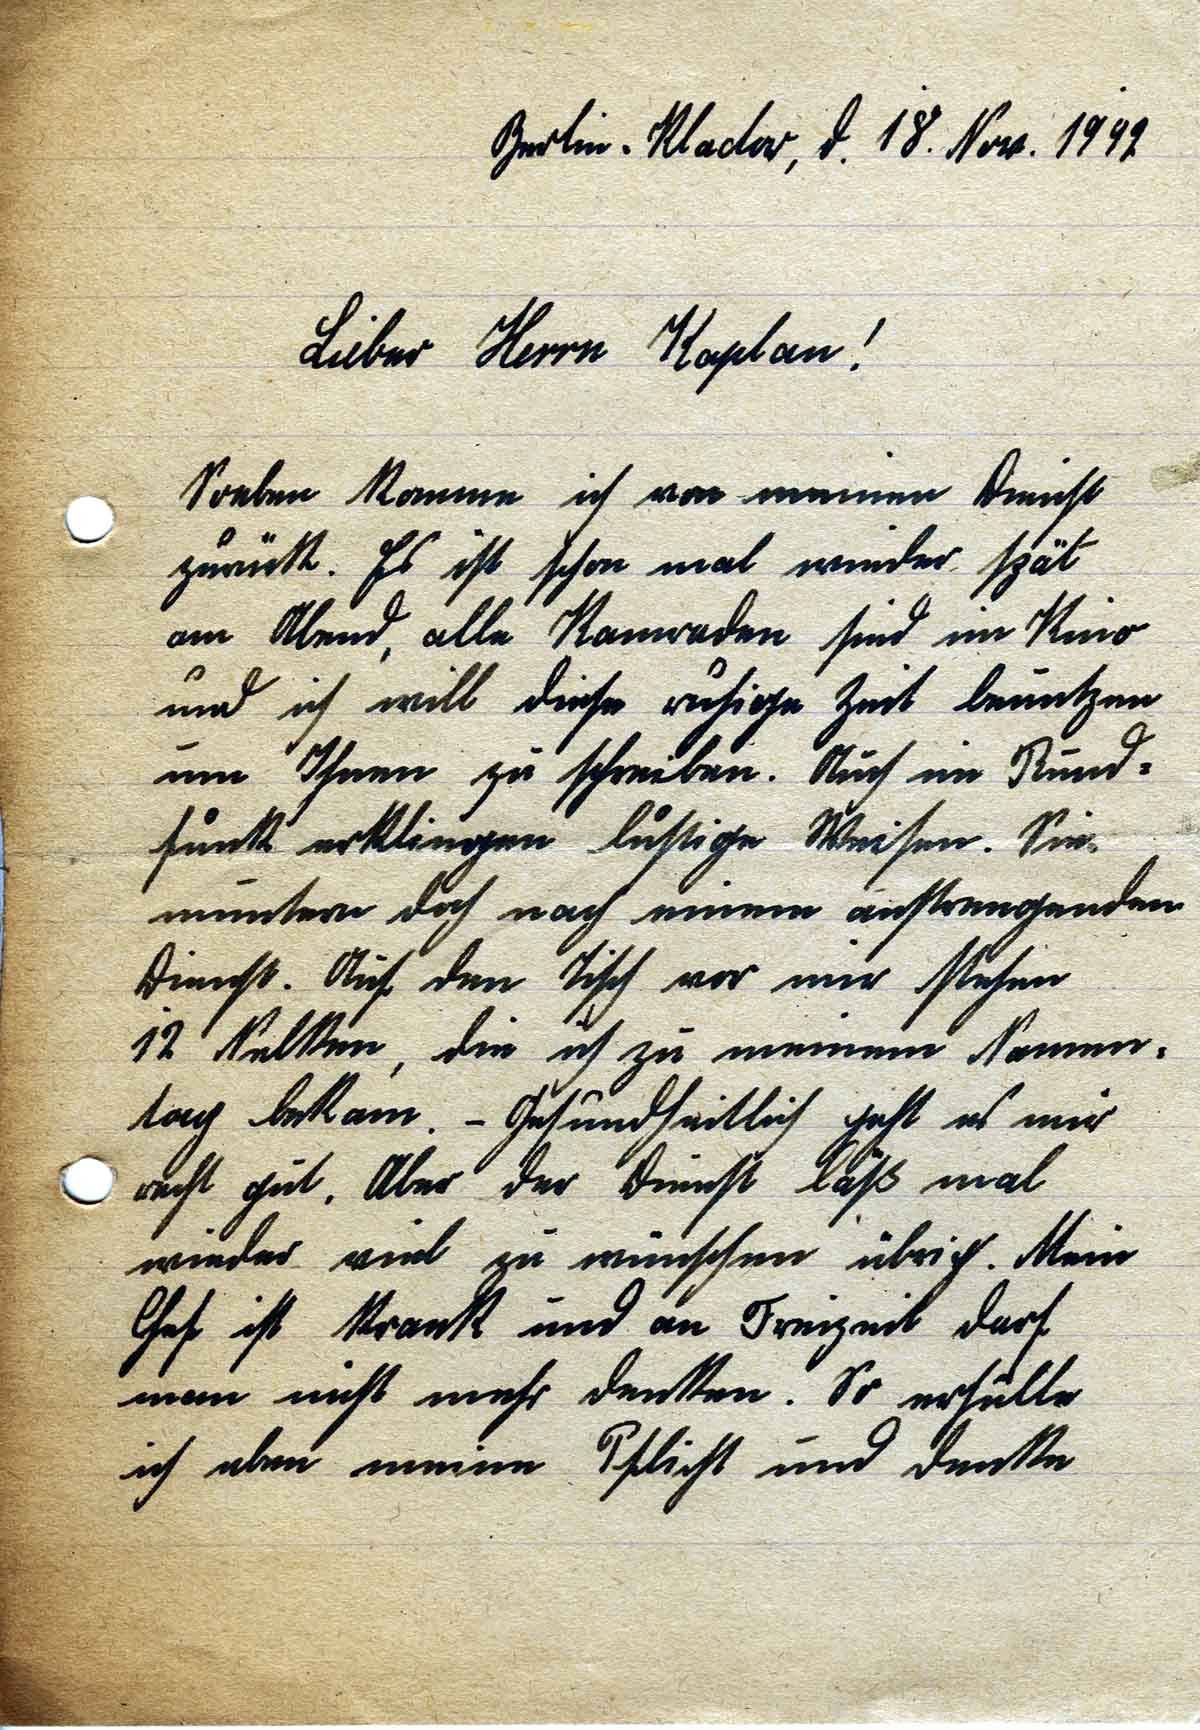 Berlin-Kladow, d. 18. Nov. 1942
Lieber Herrn Kaplan!
Soeben komme ich von meinen Dienst
zurück. Es ist schon mal wieder spät
am Abend, alle Kameraden sind im Kino
und ich will diese ruhige Zeit benutzen
um Ihnen zu schreiben. Auch im Rund=
funk erklingen lustige Weisen. Sie
muntern doch nach einem anstrengenden
Dienst. Auf den Tisch vor mir stehen
12 Nelken, die ich zu meinem Namen=
tag bekam. – Gesundheitlich geht es mir
recht gut. Aber der Dienst läßt mal
wieder viel zu wünschen übrig. Mein
Chef ist krank und an Freizeit darf
man nicht mehr denken. So erfülle
ich eben meine Pflicht und denke